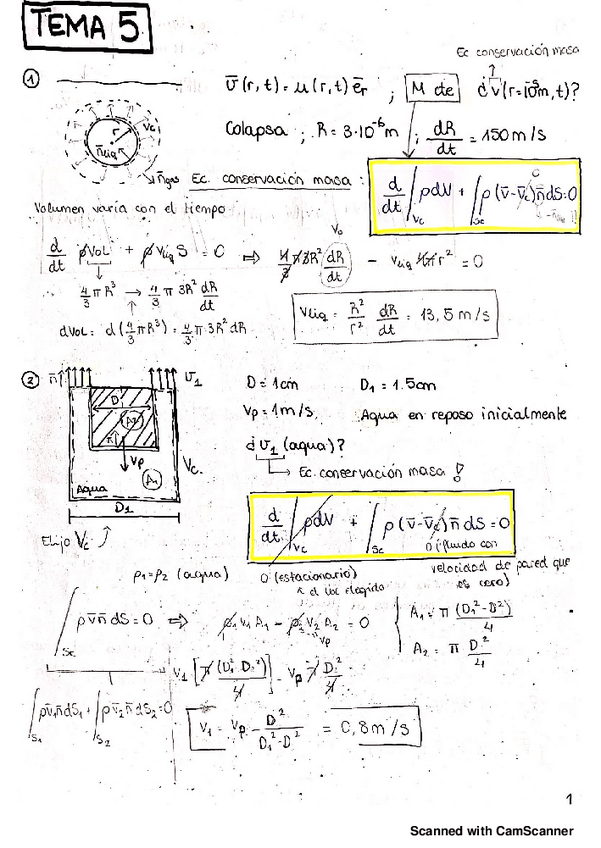 TEMA 5
Ec conservación masa
① v̄(r,t) = u(r,t) ēr ; M de ¿v(r=10⁻⁵m, t)?
Colapsa ; R = 3·10⁻⁶m ; dR/dt = 150 m/s
r
Vc
n̄liq
n̄gas
Ec. conservación masa :
d/dt ∫Vc ρdV + ∫Sc ρ(v̄-v̄c)n̄dS = 0
0
Volumen varía con el tiempo
d/dt ρVOL + ρVliq S = 0 ⇒ 4/3 π 3R² dR/dt - Vliq 4π r² = 0
4/3 π R³ → 4/3 π 3R² dR/dt
dVOL = d(4/3 π R³) = 4/3 π 3R² dR
Vliq = R²/r² dR/dt = 13,5 m/s
② n̄ v1
D
A2
n̄
Vp
Vc
A1
Agua
D1
Elijo Vc
D = 1cm D1 = 1.5cm
Vp = 1m/s. Agua en reposo inicialmente
¿v1 (agua)?
Ec. conservación masa!
d/dt ∫Vc ρdV + ∫Sc ρ(v̄-v̄c)n̄dS = 0
0 (estacionario)
0 (fluido con
velocidad de pared que
es cero)
ρ1 = ρ2 (agua)
∫Sc ρv̄n̄dS = 0 ⇒ ρ1 v1 A1 - ρ2 v2 A2 = 0
Vp
A1 = π (D1²-D²)/4
A2 = π D²/4
∫S1 ρv̄1n̄dS1 + ∫S2 ρv̄2n̄dS2 = 0
v1 [π (D1²-D²)/4] - Vp π D²/4
v1 = Vp · D²/(D1²-D²) = 0,8 m/s
1
Scanned with CamScanner